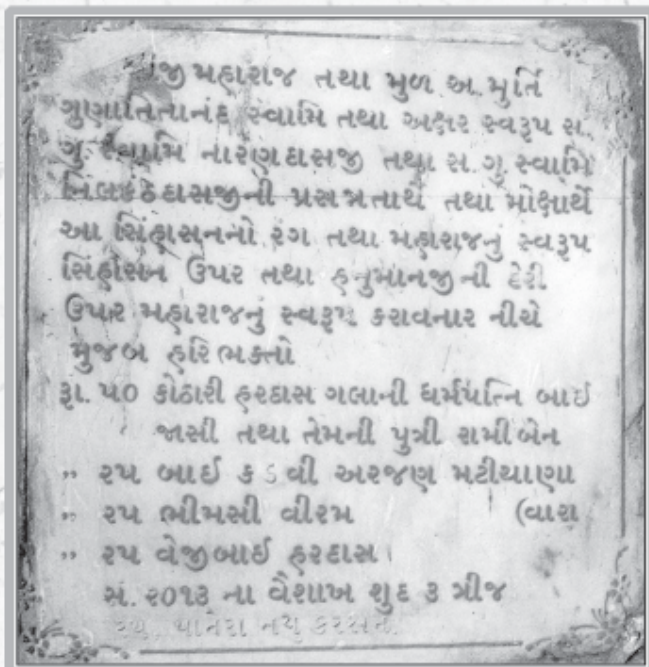 જી મહારાજ તથા મુળ અ. મુર્તિ
ગુણાતિતાનંદ સ્વામિ તથા અક્ષર સ્વરૂપ સ.
ગુ. સ્વામિ નારણદાસજી તથા સ. ગુ. સ્વામિ
નિલકંઠદાસજીની પ્રસન્નતાર્થે તથા મોક્ષાર્થે
આ સિંહાસનનો રંગ તથા મહારાજનું સ્વરૂપ
સિંહાસન ઉપર તથા હનુમાનજીની દેરી
ઉપર મહારાજનું સ્વરૂપ કરાવનાર નીચે
મુજબ હરિભક્તો
રૂા. ૫૦ કોઠારી હરદાસ ગલાની ધર્મપત્નિ બાઈ
જાસી તથા તેમની પુત્રી રામીબેન
,, ૨૫ બાઈ કડવી અરજણ મટીયાણા
,, ૨૫ ભીમસી વીરમ (વારા
,, ૨૫ વેજીબાઈ હરદાસ
સં. ૨૦૧૩ ના વૈશાખ શુદ ૩ ત્રીજ
કરસન